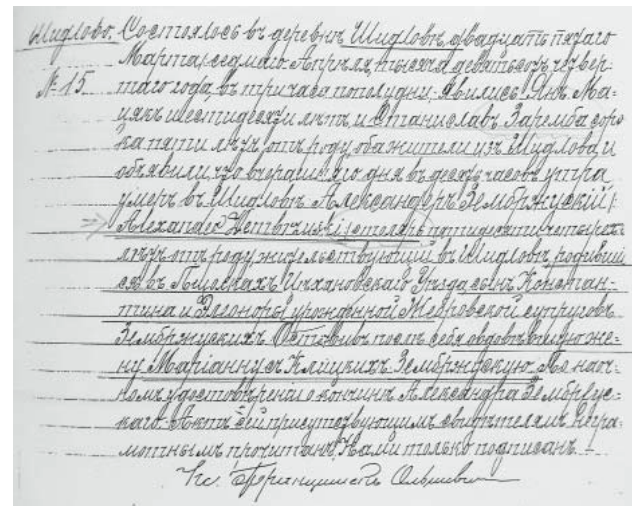 Шидлово. Состоялось въ деревнѣ Шидловѣ, двадцать пятаго
Марта /седьмаго Апрѣля/ тысяча девятьсотъ четвер-
№ 15. таго года, въ три часа пополудни. Явились Янъ Ма-
цякъ шестидесяти лѣтъ и Станиславъ Заремба соро-
ка пяти лѣтъ отъ роду, оба жители изъ Шидлова и
объявили, что вчерашняго дня въ десять часовъ утра
умеръ въ Шидловѣ Александеръ Зембржускій /
Alexander Zembrzuski / столяръ пятидесяти четырехъ
лѣтъ отъ роду жительствующій въ Шидловѣ родивший
ся въ Цѣхановскаго Уѣзда сынъ Констан-
тина и Элеоноры урожденной супруговъ
Зембржускихъ. Оставивъ послѣ себя овдовѣвшую же-
ну Маріанну съ Клицкихъ Зембржускую. По наоч-
номъ удостовѣреніи о кончинѣ Александра Зембржус-
каго. Актъ сей присутствующимъ свидѣтелямъ негра-
мотнымъ прочитанъ, Нами только подписанъ. —
Кс. Францишекъ